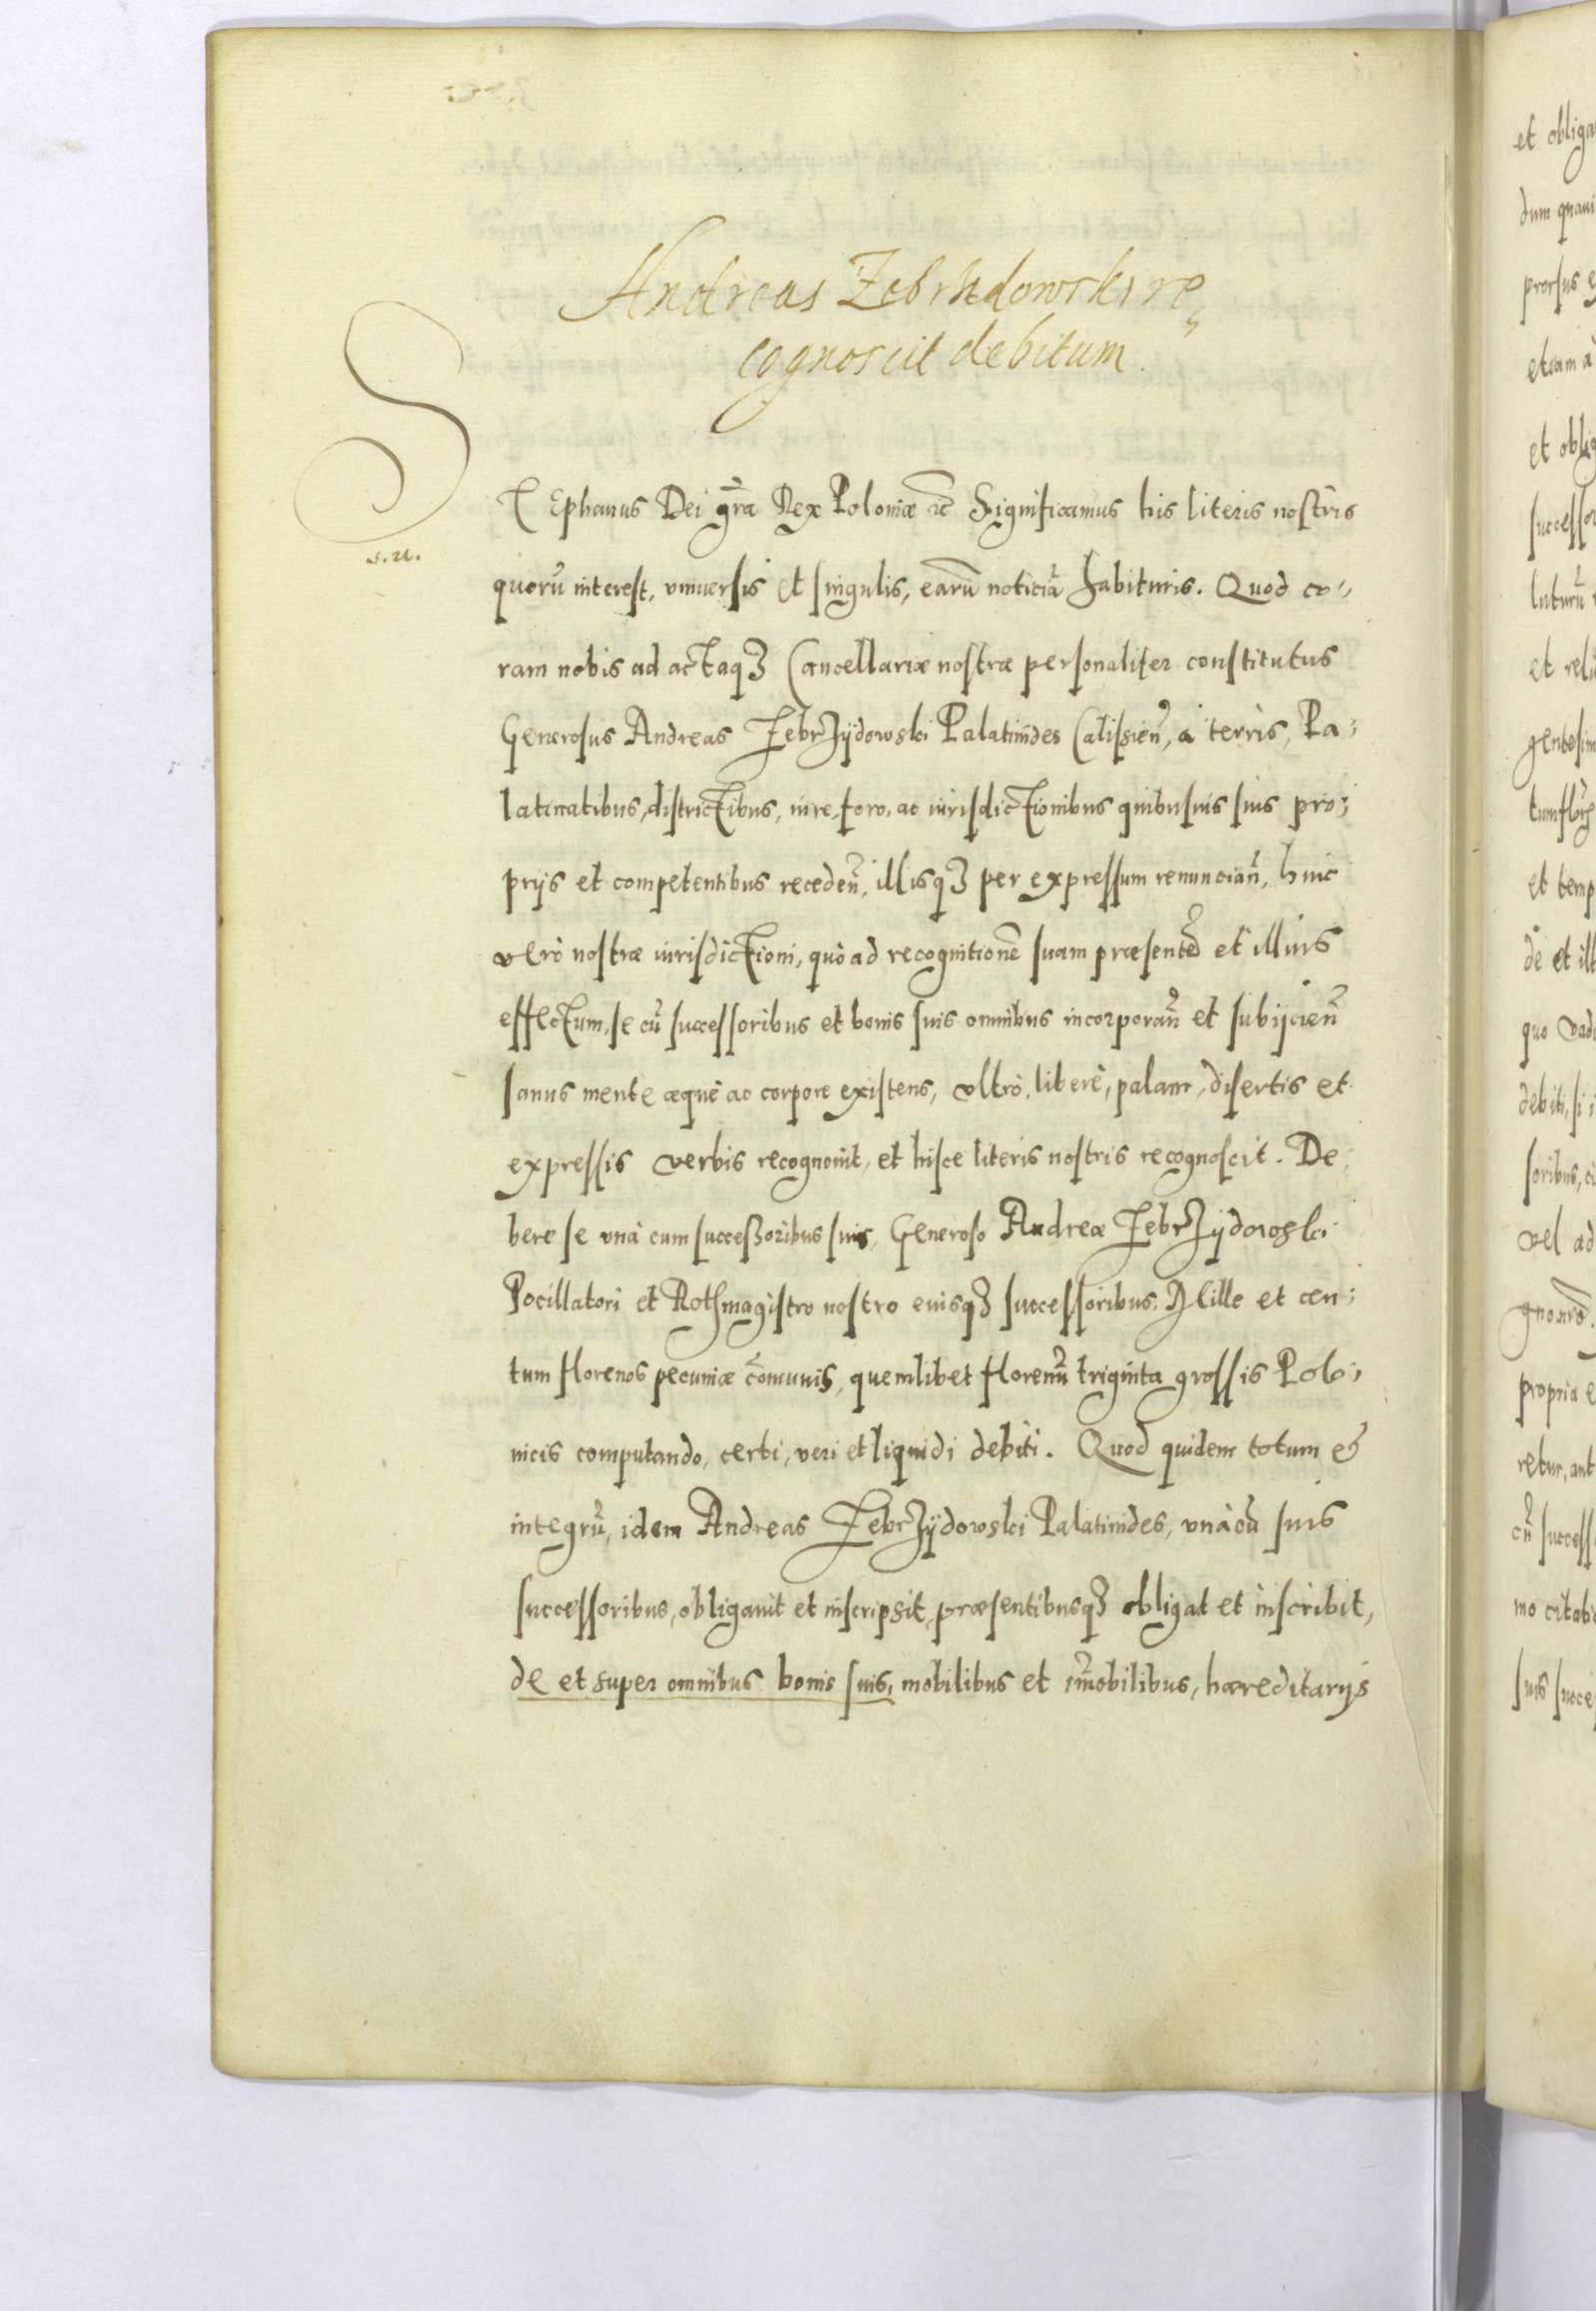 Andreas Zebrzidowski re„
cognoscit debitum.
STEphanus Dei gr̃a Rex Poloniæ ꝛc̃ Significamus his literis nostris
s. u.
quorũ interest, vniuersis et singulis, earũ noticiã habituris. Quod co„
ram nobis ad actaqꝫ Cancellariæ nostræ personaliter constitutus
Generosus Andreas Zebrzÿdowski Palatinides Calissieñ, à terris, Pa„
latinatibus, districtibus, iure, foro, ac iurisdictionibus quibusuis suis pro„
prijs et competentibus recedeñ, illisqꝫ per expressum renunciañ, huic
verò nostræ iurisdictioni, quò ad recognitionẽ suam præsentẽ et illius
effectum, se cũ successoribus et bonis suis omnibus incorporañ et subijcieñ
sanus mente æquè ac corpore existens, vltrò, liberè, palam, disertis et
expressis verbis recognouit, et hisce literis nostris recognoscit. De„
bere se vnà cum successoribus suis, Generoso Andreæ Zebrzÿdowski
Pocillatori et Rothmagistro nostro eiusqꝫ successoribus, Mille et cen„
tum florenos pecuniæ cõmunis, quemlibet florenũ triginta grossis Polo„
nicis computando, certi, veri et liquidi debiti. Quod quidem totum &
integrũ, idem Andreas Zebrzÿdowski Palatinides, vnà cũ suis
successoribus, obligauit et inscripsit, præsentibusqꝫ obligat et inscribit,
de et super omnibus bonis suis, mobilibus et im̃obilibus, hæreditarijs
et obliga
dum quam
prorsus
etiam à
et oblig
successor
luturũ
et relu
gentesim
et temp
de et ill
quo vad
debiti, si i
soribus, ci
vel ad
propria e
retur, aut
cũ success
mo citat
suis succe